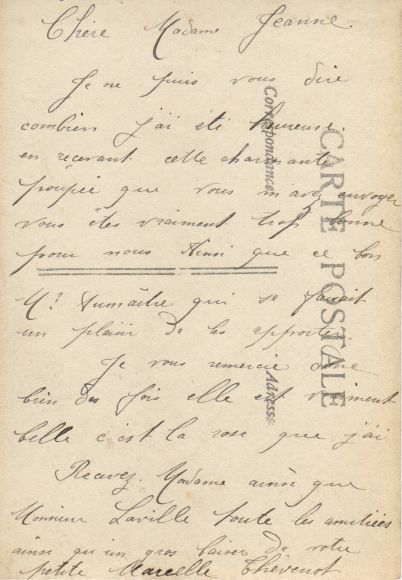 Chère Madame Jeanne.
Je ne puis vous dire
combien j'ai été heureuse
en recevant cette charmante
poupée que vous m'avez envoyer
vous êtes vraiment trop bonne
pour nous Ainsi que ce bon
Mr Aumaître qui se faisait
un plaisir de les apporter.
Je vous remercie donc
bien des fois elle est vraiment
belle c'est la rose que j'ai
Recevez Madame ainsi que
Monsieur Laville toute les amitiées
ainsi qu'un gros baiser de votre
petite Marcelle Thevenot
CARTE POSTALE
Correspondance
Adresse